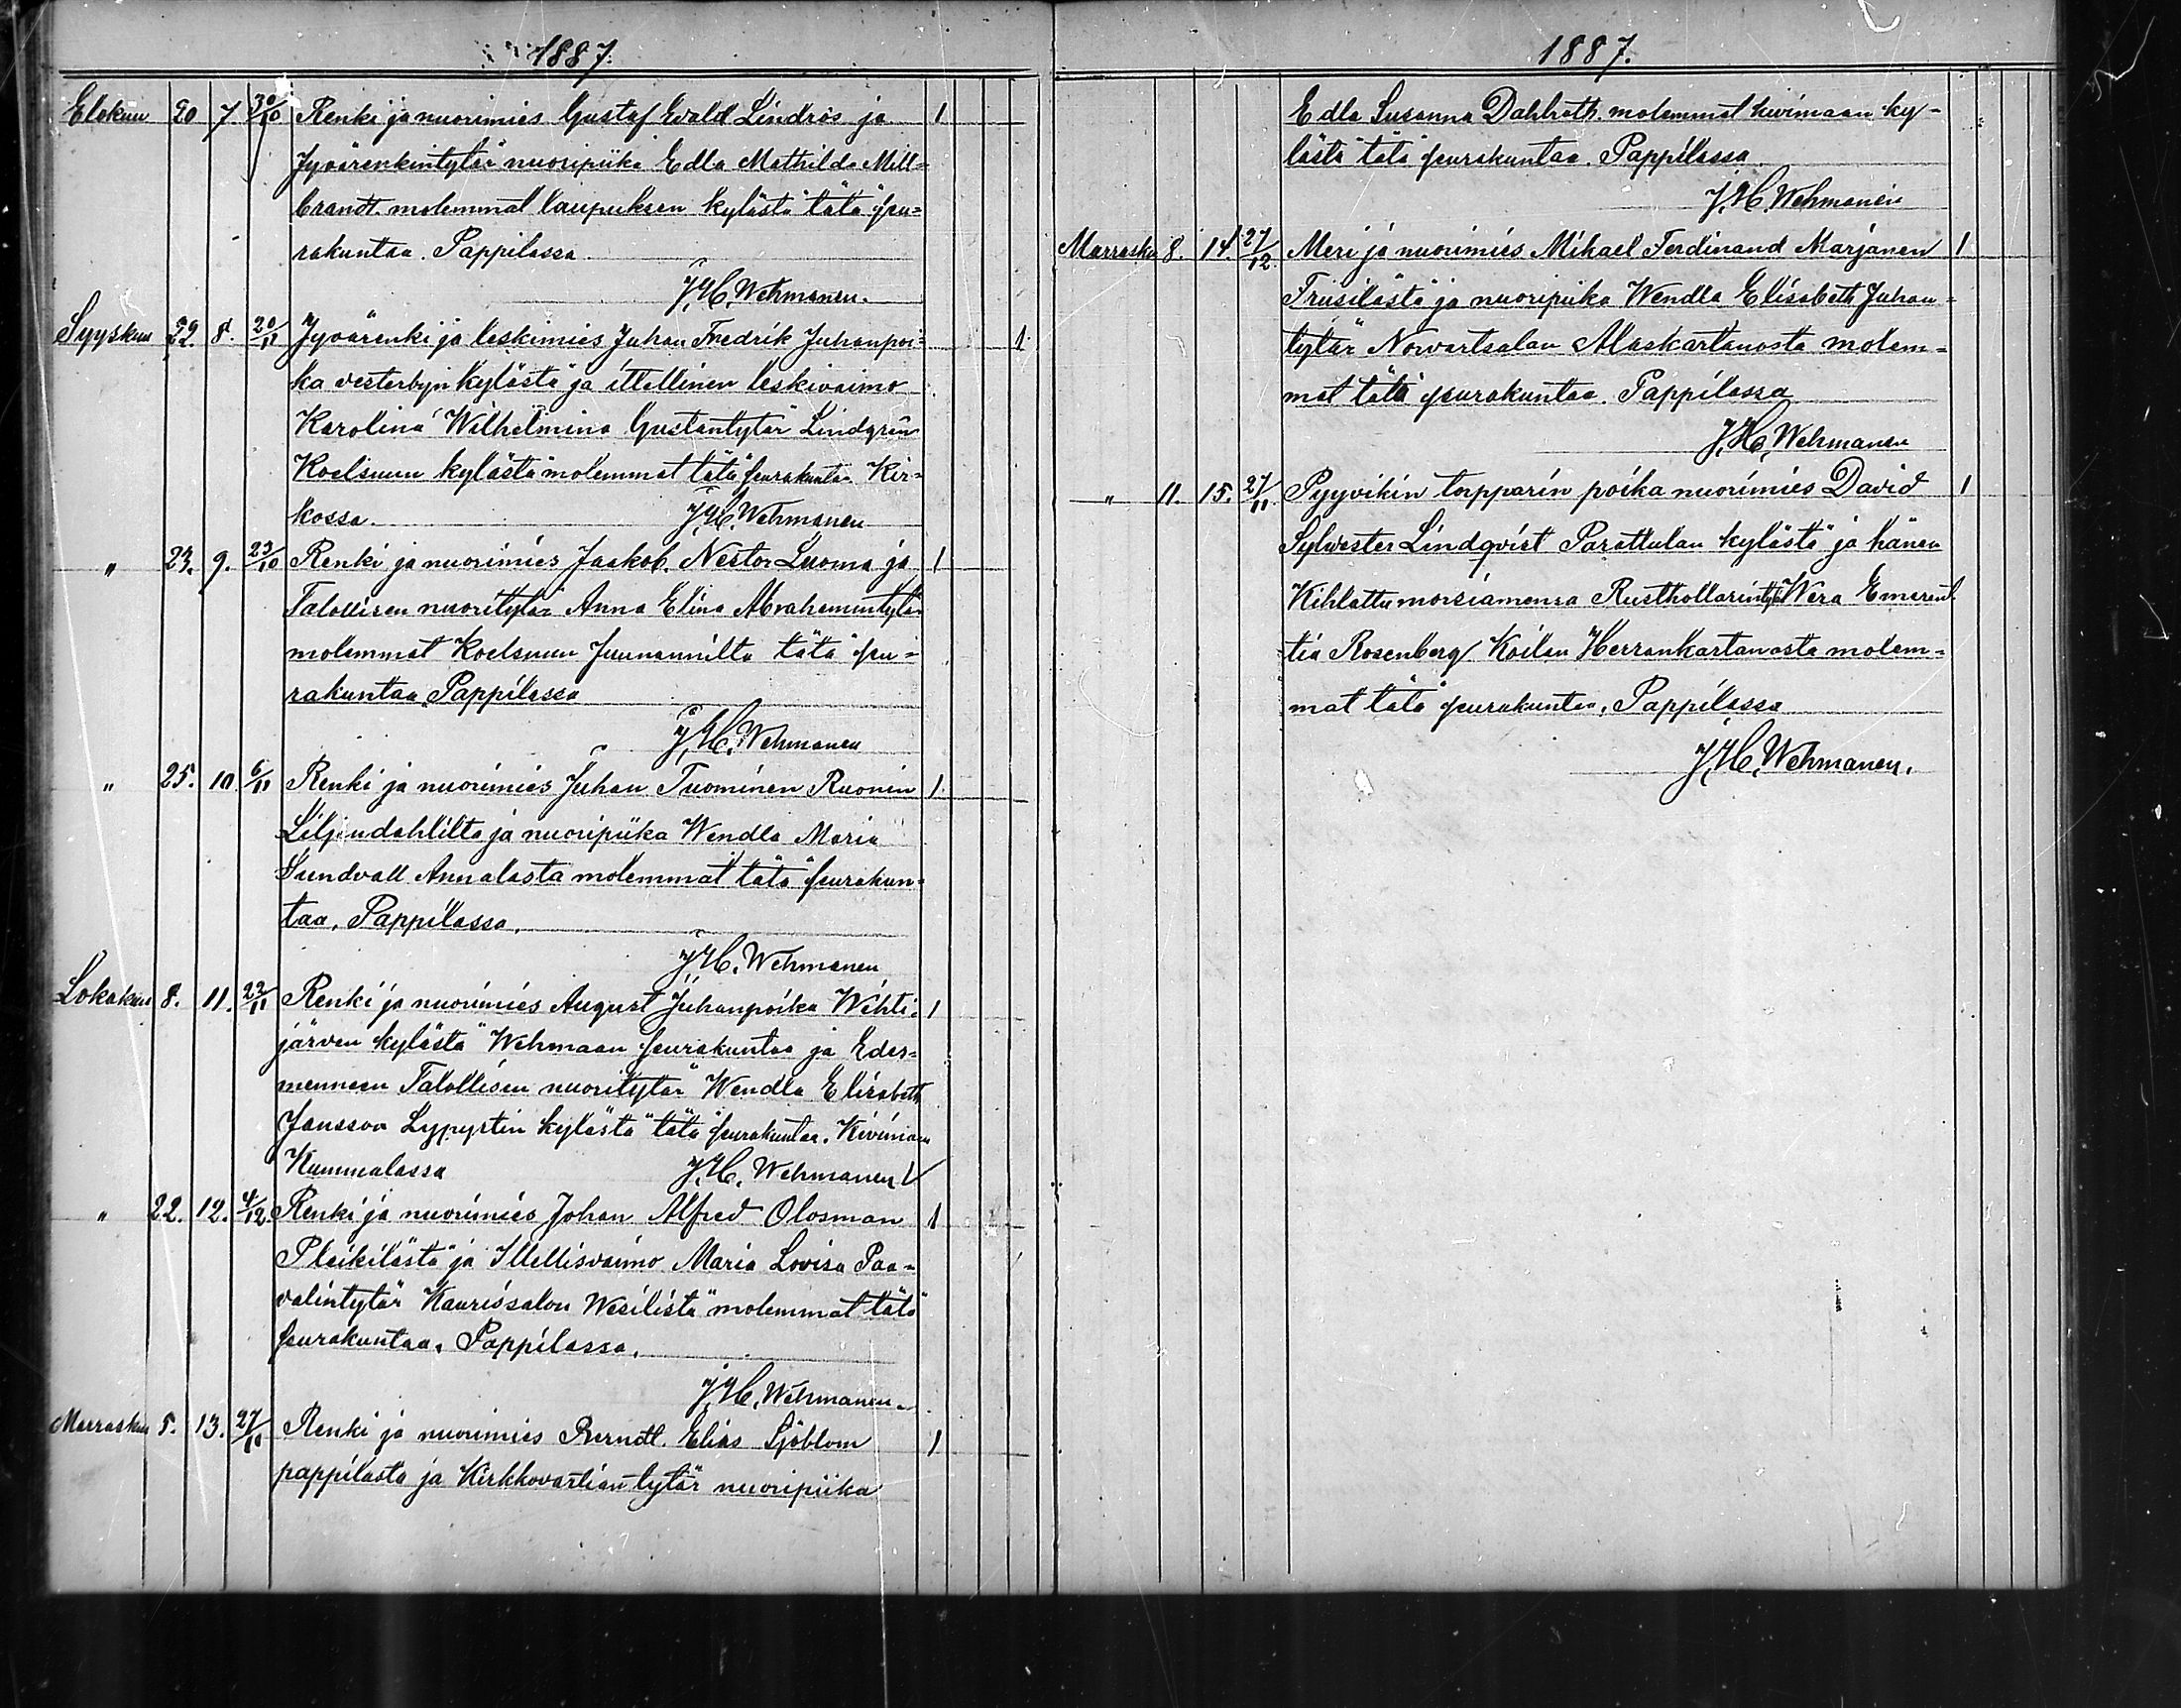 1887.
Elokuu 20 7 30/10 Renki ja nuorimies Gustaf Evald Lindrös ja 1
Jyvärenkintytär nuoripiika Edla Mathilda Mill=
brandt molemmat laupuksen kylästä tätä seu=
rakuntaa. Pappilassa
J. H. Wehmanen.
Syyskuu 22. 8. 20/11 Jyvärenki ja leskimies Juhan Fredrik Juhanpoi= 1
ka vesterbyn kylästä ja ittellinen leskivaimo
Karolina Wilhelmina Gustantytär Lindgren
Koelsuun kylästä molemmat tätä seurakuntaa. Kir=
kossa. J. H. Wehmanen
" 23. 9. 23/10 Renki ja nuorimies Jaakob. Nestor Luoma ja 1
Talollisen nuoritytär Anna Elina Abrahamintytär
molemmat Koelsuun Juunannilta tätä seu=
rakuntaa Pappilassa
J. H. Wehmanen
" 25. 10 6/11 Renki ja nuorimies Juhan Tuominen Ruonin 1
Liljendahlilta ja nuoripiika Wendla Maria
Sundvall Annalasta molemmat tätä seurakun=
taa. Pappilassa.
J. H. Wehmanen
Lokakuu 8. 11. 22/11 Renki ja nuorimies August Juhanpoika Wihti= 1
järven kylästä Wehmaan seurakuntaa ja Edes=
menneen Talollisen nuoritytär Wendla Elisabeth
Jansson Lypyrtin kylästä tätä seurakuntaa. Kivimaan
Kummalassa J. H. Wehmanen
" 22. 12. 4/12 Renki ja nuorimies Johan Alfred Olosman 1
Pleikilästä ja Itlellisvaimo Maria Lovisa Paa=
valintytär Kaurissalon Wesilistä molemmat tätä
seurakuntaa. Pappilassa.
J. H. Wehmanen
Marraskuu 5. 13. 27/11 Renki ja nuorimies Berndt. Elias Sjöblom 1
pappilasta ja Kirkkovartian tytär nuoripiika
1887.
Edla Susanna Dahlroth. molemmat kivimaan ky-
lästä tätä seurakuntaa. Pappilassa
J. H. Wehmanen
Marrasku 8. 14. 27/12. Meri ja nuorimies Mikael Ferdinand Marjanen 1
Friisilästä ja nuoripiika Wendla Elisabeth Juhan=
tytär Nowartsalan Alaskartanosta molem=
mat tätä seurakuntaa. Pappilassa
J. H. Wehmanen
" 11. 15. 27/11. Pyyvikin torpparin poika nuorimies David 1
Sylvester Lindqvist Parattulan kylästä ja hänen
Kihlattu morsiamensa Rusthollarintytär Wera Emerent
tia Rosenberg Koilan Herrankartanosta molem=
mat tätä seurakuntaa, Pappilassa
J. H. Wehmanen.